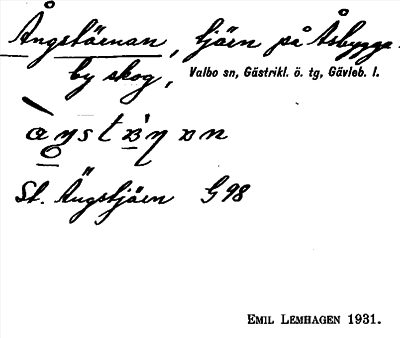 Ångstärnan, tjärn på Åsbygge
by skog, Valbo sn, Gästrikl. ö. tg, Gävleb. l.
St. Ängstjärn G 98
EMIL LEMHAGEN 1931.